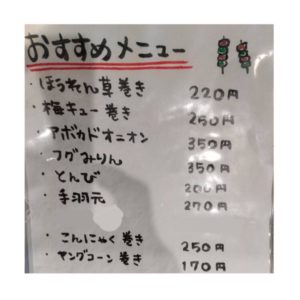 おすすめメニュー
・ほうれん草巻き 220円
・梅キュー巻き 250円
・アボカドオニオン 350円
・フグみりん 350円
・とんび 200円
・手羽元 270円
・こんにゃく巻き 250円
・ヤングコーン巻き 170円